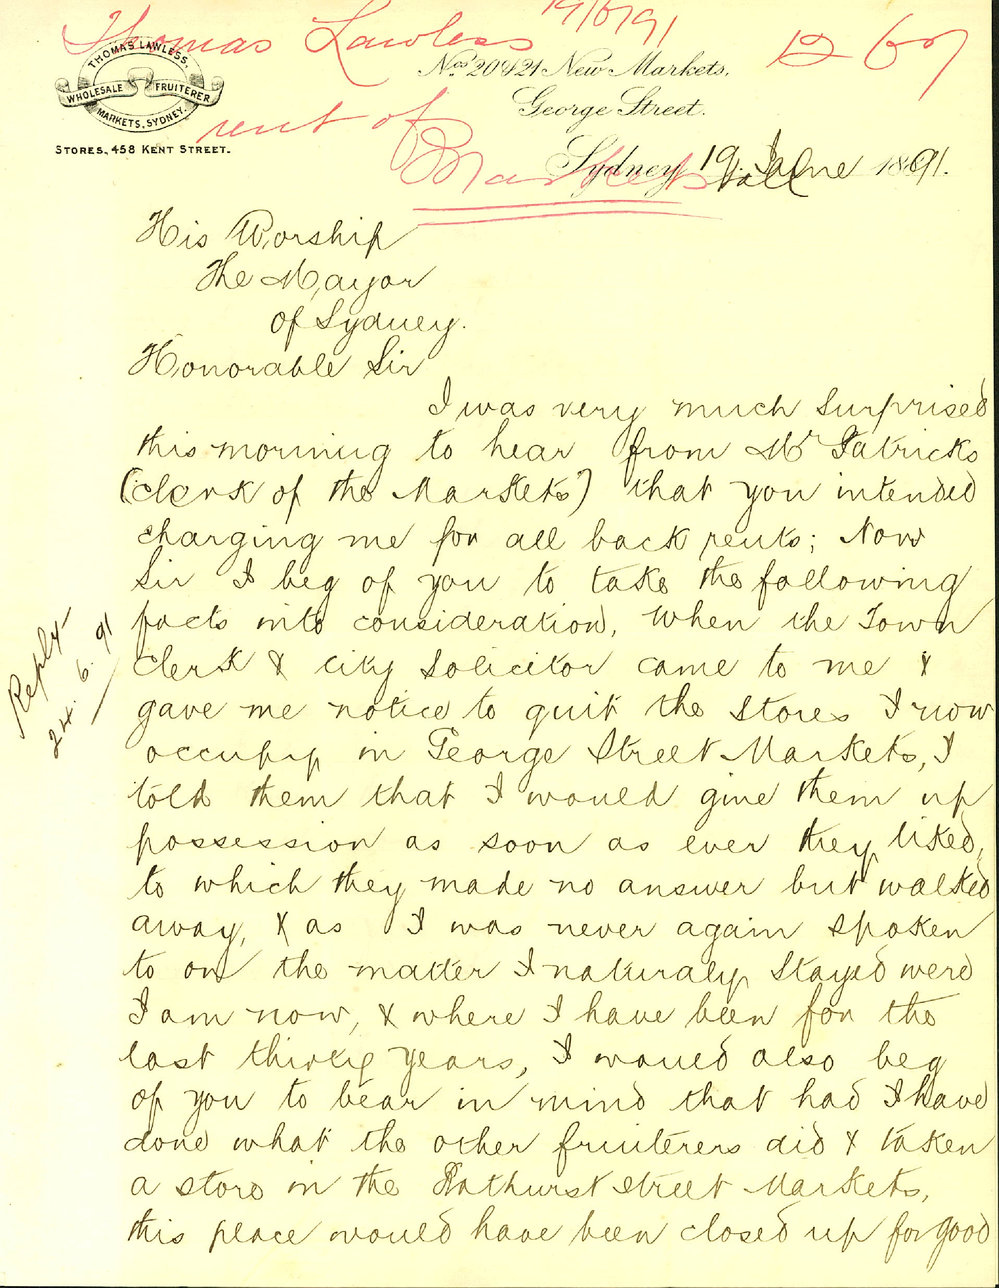 Thomas Lawless 19/6/91
1267
THOMAS LAWLESS,
WHOLESALE FRUITERER
MARKETS, SYDNEY.
STORES, 458 KENT STREET.
Nos 20 & 21 New Markets.
George Street.
rent of
Markets
Sydney 19 June 1891.
His Worship
The Mayor
of Sydney.
Honorable Sir
I was very much surprised
this morning to hear from Mr Patricks
(clerk of the Markets) that you intended
charging me for all back rents; Now
Sir I beg of you to take the following
facts into consideration, when the Town
Clerk & city Solicitor came to me &
gave me notice to quit the stores I now
occupy in George Street Markets, I
told them that I would give them up
possession as soon as ever they liked,
to which they made no answer but walked
away, & as I was never again spoken
to on the matter I naturaly stayed were
I am now, & where I have been for the
last thirty years, I would also beg
of you to bear in mind that had I have
done what the other fruiterers did & taken
a store in the Bathurst Street Markets,
this place would have been closed up for good
Reply
24.6.91